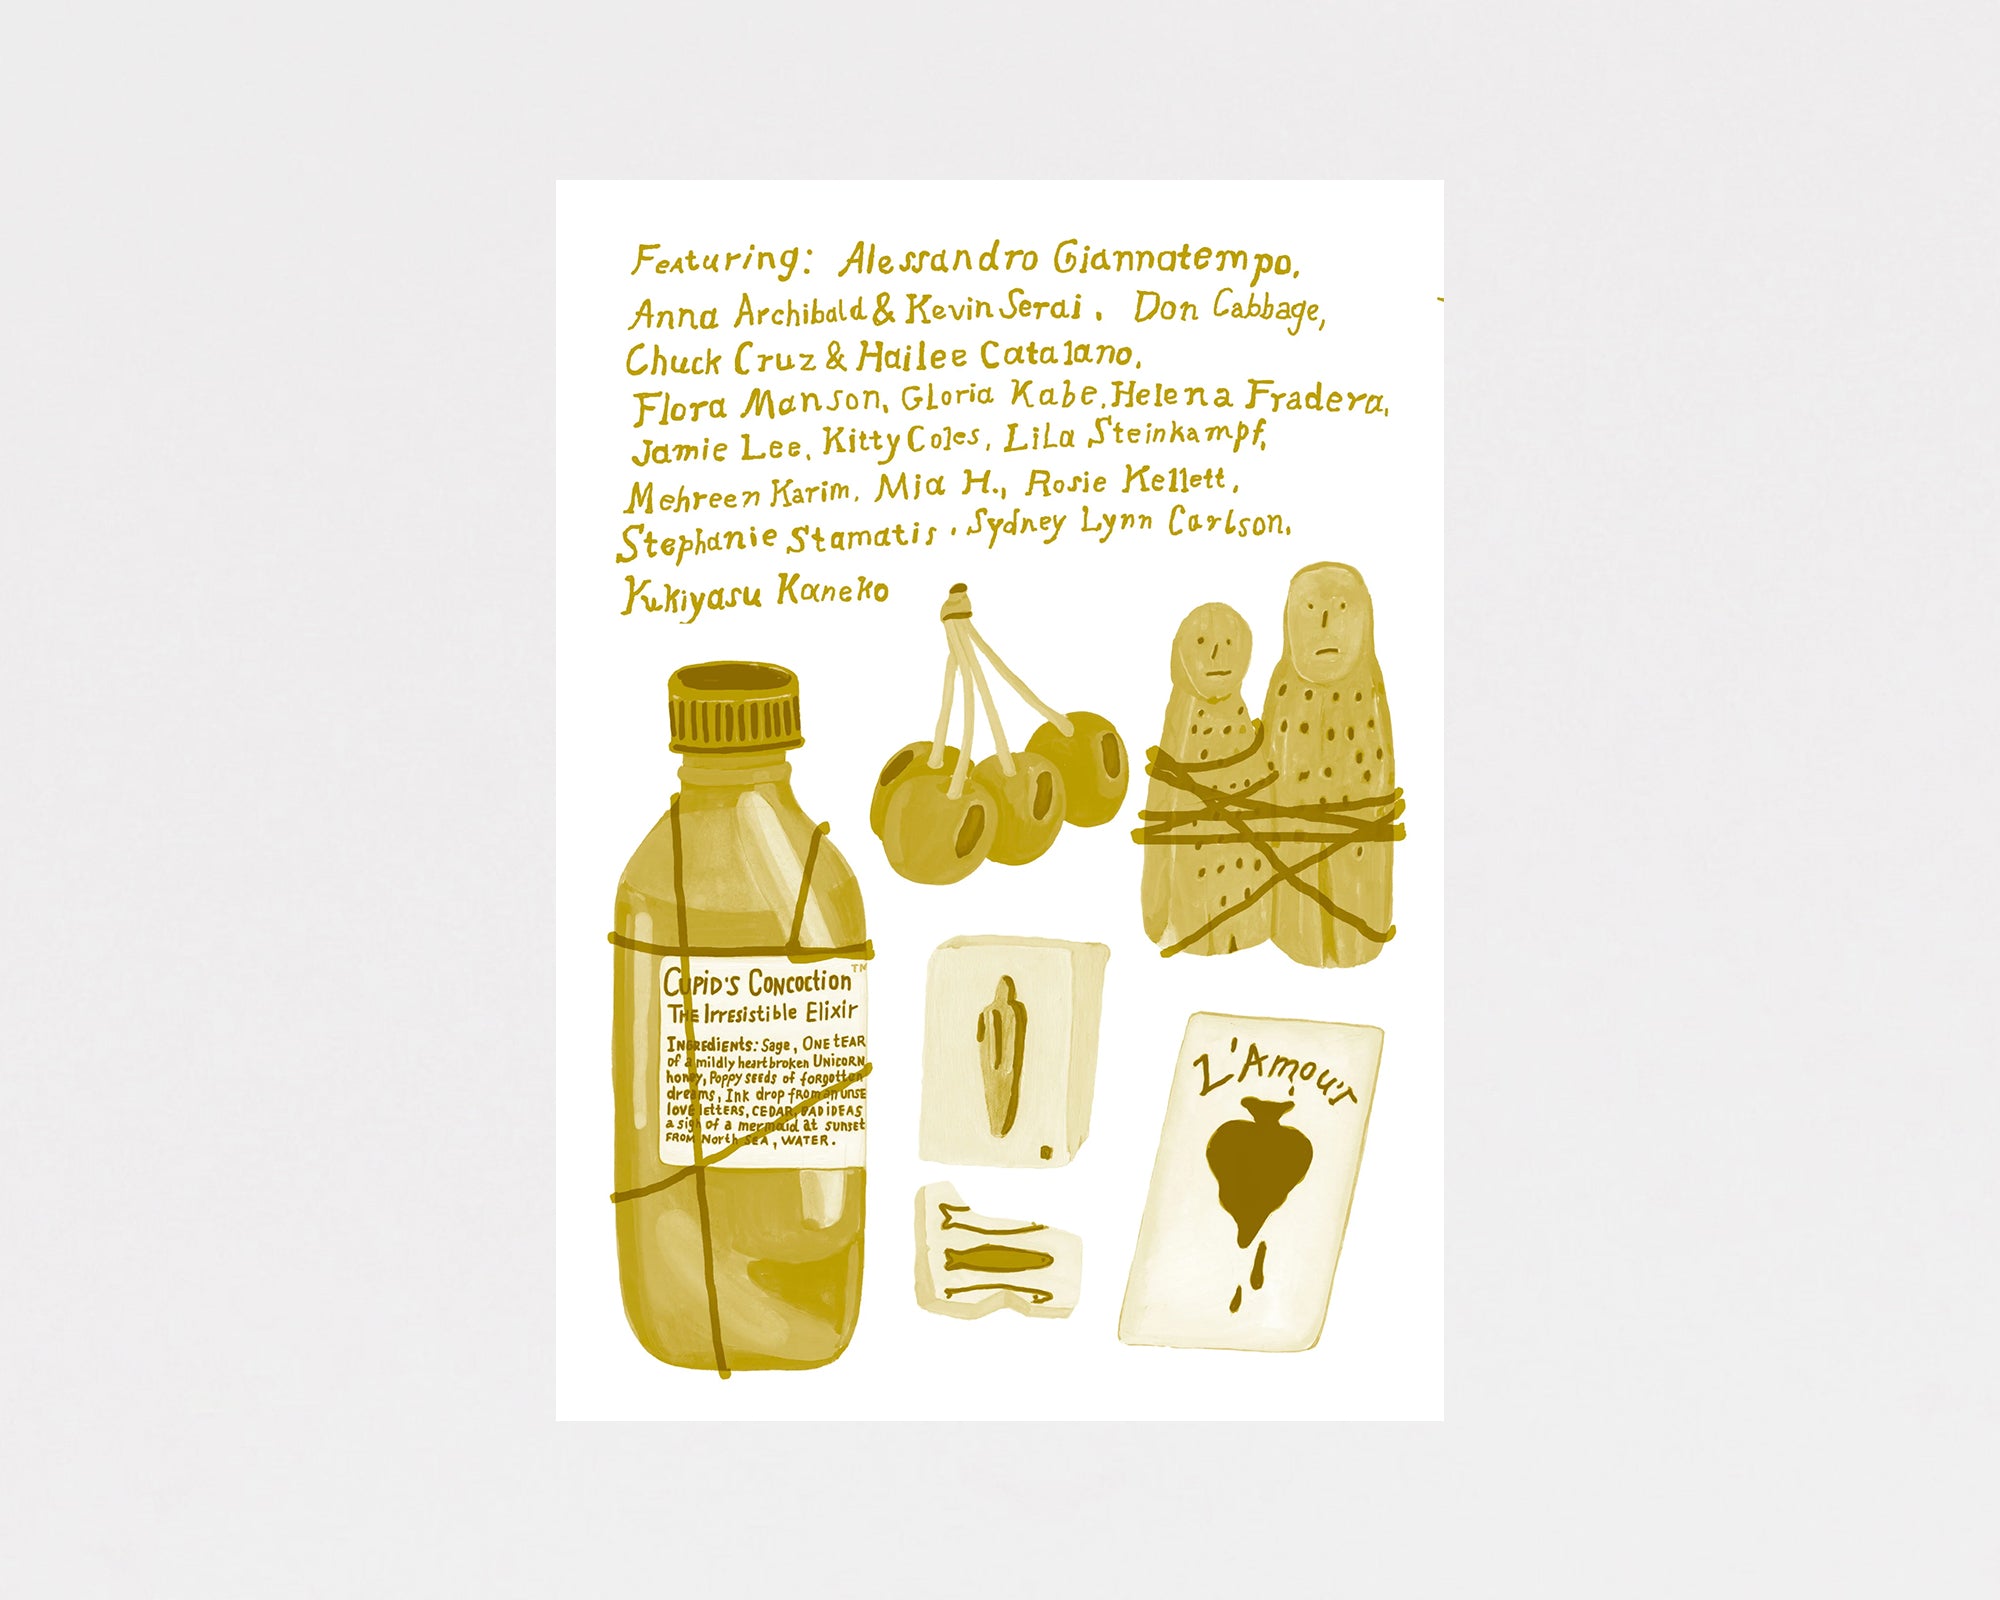 Featuring: Alessandro Giannatempo,
Anna Archibald & Kevin Serai, Don Cabbage,
Chuck Cruz & Hailee Catalano,
Flora Manson, Gloria Kabe, Helena Fradera,
Jamie Lee, Kitty Coles, Lila Steinkampf,
Mehreen Karim, Mia H., Rosie Kellett,
Stephanie Stamatis, Sydney Lynn Carlson,
Yukiyasu Kaneko
Cupid's Concoction™
The Irresistible Elixir
Ingredients: Sage, One tear
of a mildly heartbroken Unicorn,
honey, Poppy seeds of forgotten
dreams, Ink drop from an unse
love letters, cedar, bad ideas
a sigh of a mermaid at sunset
from North Sea, water.
L'Amour